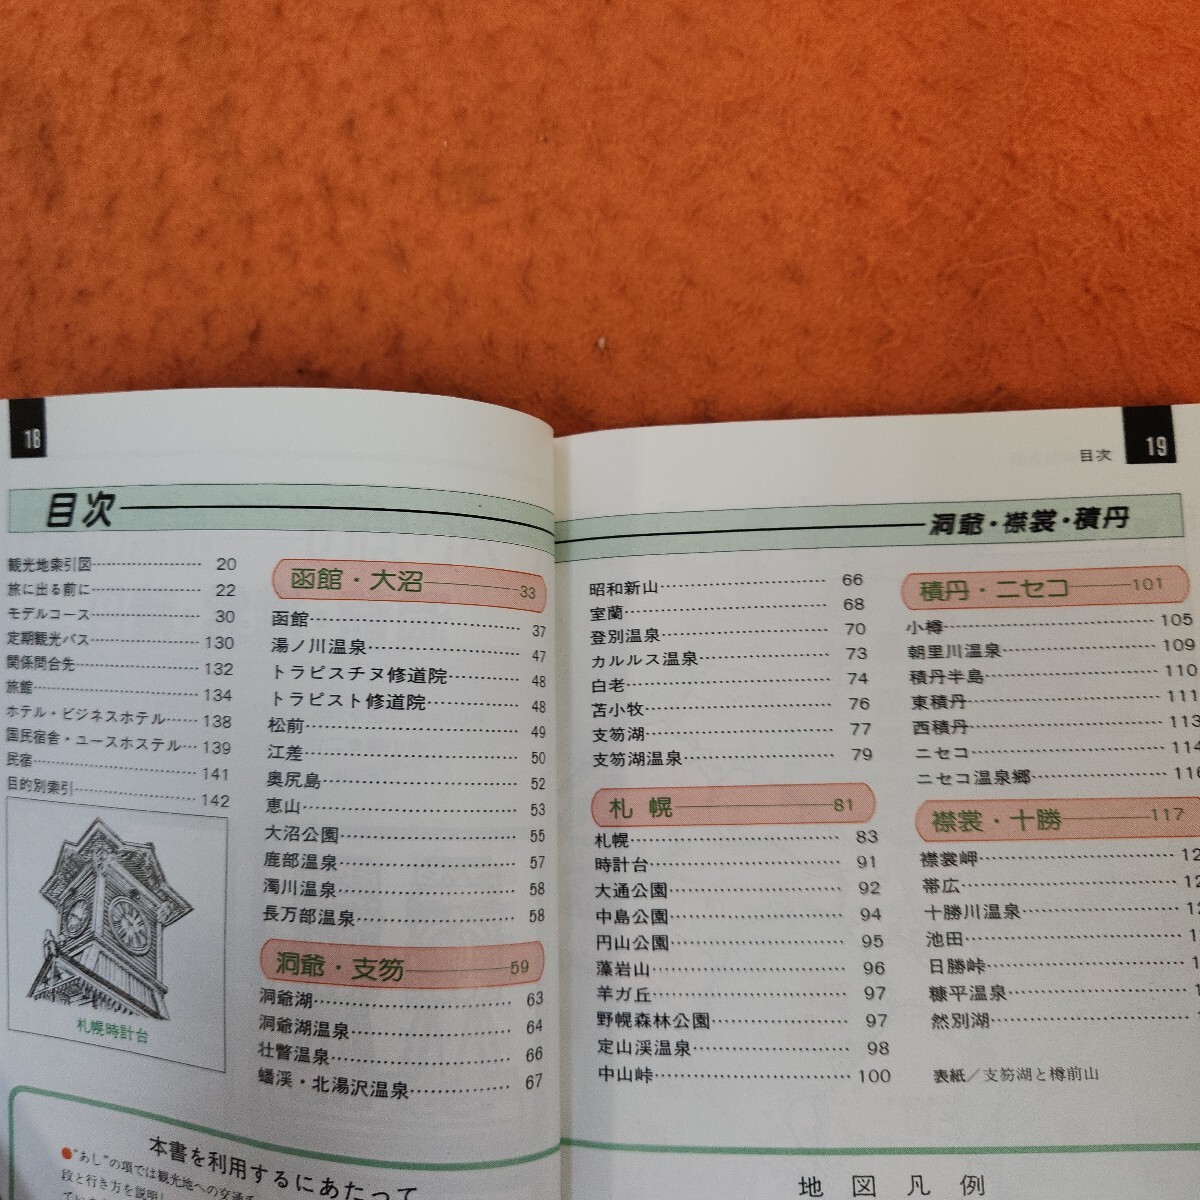 18
目次
観光地索引図 20
旅に出る前に 22
モデルコース 30
定期観光バス 130
関係問合先 132
旅館 134
ホテル・ビジネスホテル 138
国民宿舎・ユースホステル 139
民宿 141
目的別索引 142
札幌時計台
函館・大沼 33
函館 37
湯ノ川温泉 47
トラピスチヌ修道院 48
トラピスト修道院 48
松前 49
江差 50
奥尻島 52
恵山 53
大沼公園 55
鹿部温泉 57
濁川温泉 58
長万部温泉 58
洞爺・支笏 59
洞爺湖 63
洞爺湖温泉 64
壮瞥温泉 66
蟠渓・北湯沢温泉 67
本書を利用するにあたって
●"あし"の項では観光地への交通手
段と行き方を説明し
目次 19
洞爺・襟裳・積丹
昭和新山 66
室蘭 68
登別温泉 70
カルルス温泉 73
白老 74
苫小牧 76
支笏湖 77
支笏湖温泉 79
札幌 81
札幌 83
時計台 91
大通公園 92
中島公園 94
円山公園 95
藻岩山 96
羊ガ丘 97
野幌森林公園 97
定山渓温泉 98
中山峠 100
積丹・ニセコ 101
小樽 105
朝里川温泉 109
積丹半島 110
東積丹 111
西積丹 113
ニセコ 114
ニセコ温泉郷 116
襟裳・十勝 117
襟裳岬
帯広
十勝川温泉
池田
日勝峠
糠平温泉
然別湖
表紙／支笏湖と樽前山
地図凡例